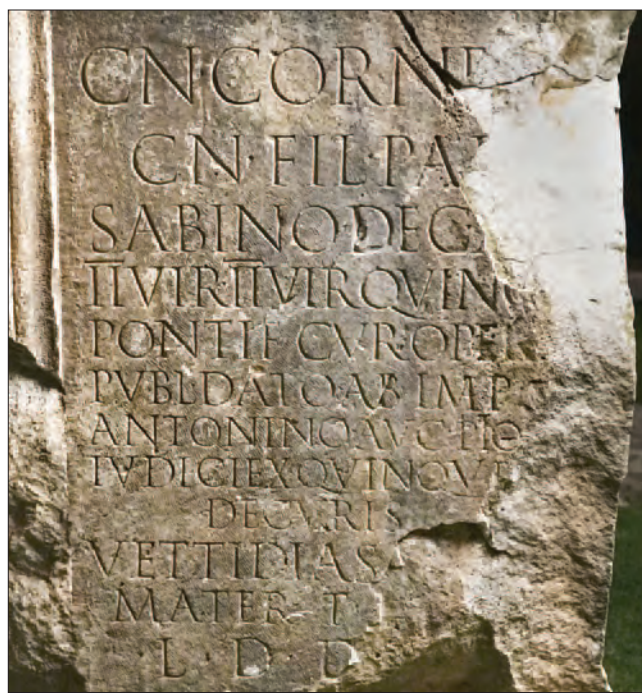 CN CORNE
CN · FIL · PA
SABINO DEC
IIVIR IIVIR QVIN
PONTIF CVR OPER
PVBL DATO AB IMP
ANTONINO AVG PIO
IVDICI EX QVINQVE
DECVRIS
VETTIDIA S
MATER T
L · D · D